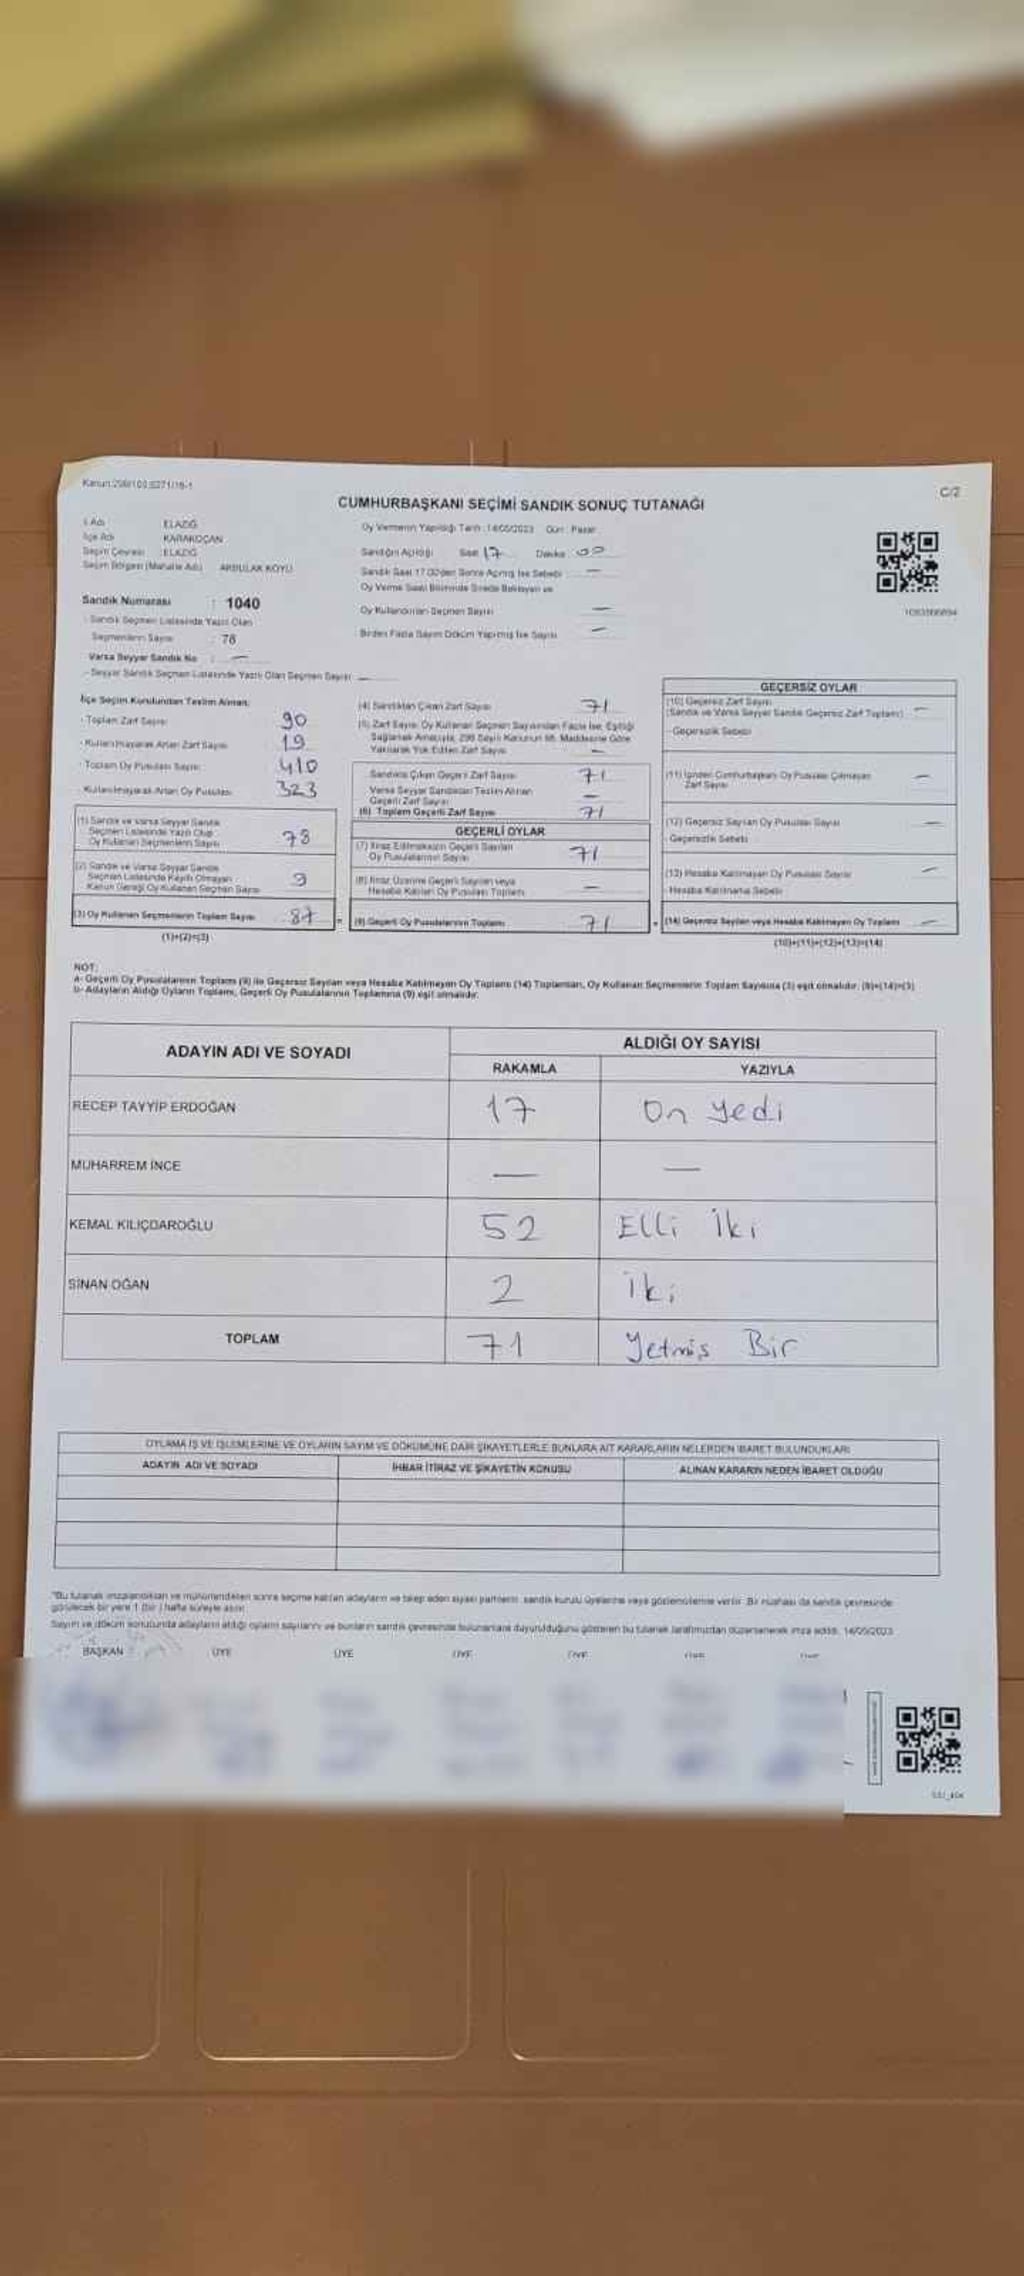 Kanun:298/103,6271/16-1
C/2
CUMHURBAŞKANI SEÇİMİ SANDIK SONUÇ TUTANAĞI
İl Adı ELAZIĞ
İlçe Adı KARAKOÇAN
Seçim Çevresi ELAZIĞ
Seçim Bölgesi (Mahalle Adı) AKBULAK KÖYÜ
Oy Vermenin Yapıldığı Tarih : 14/05/2023 Gün : Pazar
Sandığın Açıldığı Saat 17 Dakika 00
Sandık Saat 17.00'den Sonra Açılmış İse Sebebi —
Oy Verme Saati Bitiminde Sırada Bekleyen ve
Oy Kullandırılan Seçmen Sayısı —
Birden Fazla Sayım Döküm Yapılmış İse Sayısı —
Sandık Numarası : 1040
- Sandık Seçmen Listesinde Yazılı Olan
Seçmenlerin Sayısı : 78
Varsa Seyyar Sandık No : —
- Seyyar Sandık Seçmen Listesinde Yazılı Olan Seçmen Sayısı —
İlçe Seçim Kurulundan Teslim Alınan;
- Toplam Zarf Sayısı 90
- Kullanılmayarak Artan Zarf Sayısı 19
- Toplam Oy Pusulası Sayısı 410
- Kullanılmayarak Artan Oy Pusulası 323
(1) Sandık ve Varsa Seyyar Sandık
Seçmen Listesinde Yazılı Olup
Oy Kullanan Seçmenlerin Sayısı 78
(2) Sandık ve Varsa Seyyar Sandık
Seçmen Listesinde Kayıtlı Olmayan
Kanun Gereği Oy Kullanan Seçmen Sayısı 9
(3) Oy Kullanan Seçmenlerin Toplam Sayısı 87
(1)+(2)=(3)
(4) Sandıktan Çıkan Zarf Sayısı 71
(5) Zarf Sayısı Oy Kullanan Seçmen Sayısından Fazla İse, Eşitliği
Sağlamak Amacıyla, 298 Sayılı Kanunun 98. Maddesine Göre
Yakılarak Yok Edilen Zarf Sayısı —
Sandıkta Çıkan Geçerli Zarf Sayısı 71
Varsa Seyyar Sandıktan Teslim Alınan
Geçerli Zarf Sayısı —
(6) Toplam Geçerli Zarf Sayısı 71
GEÇERLİ OYLAR
(7) İtiraz Edilmeksizin Geçerli Sayılan
Oy Pusulalarının Sayısı 71
(8) İtiraz Üzerine Geçerli Sayılan veya
Hesaba Katılan Oy Pusulası Toplamı —
(9) Geçerli Oy Pusulalarının Toplamı 71
GEÇERSİZ OYLAR
(10) Geçersiz Zarf Sayısı
(Sandık ve Varsa Seyyar Sandık Geçersiz Zarf Toplamı) —
- Geçersizlik Sebebi
(11) İçinden Cumhurbaşkanı Oy Pusulası Çıkmayan
Zarf Sayısı —
(12) Geçersiz Sayılan Oy Pusulası Sayısı —
- Geçersizlik Sebebi
(13) Hesaba Katılmayan Oy Pusulası Sayısı —
- Hesaba Katılmama Sebebi
(14) Geçersiz Sayılan veya Hesaba Katılmayan Oy Toplamı —
(10)+(11)+(12)+(13)=(14)
NOT:
a- Geçerli Oy Pusulalarının Toplamı (9) ile Geçersiz Sayılan veya Hesaba Katılmayan Oy Toplamı (14) Toplamları, Oy Kullanan Seçmenlerin Toplam Sayısına (3) eşit olmalıdır. (9)+(14)=(3)
b- Adayların Aldığı Oyların Toplamı, Geçerli Oy Pusulalarının Toplamına (9) eşit olmalıdır.
ADAYIN ADI VE SOYADI
ALDIĞI OY SAYISI
RAKAMLA YAZIYLA
RECEP TAYYİP ERDOĞAN 17 On yedi
MUHARREM İNCE — —
KEMAL KILIÇDAROĞLU 52 Elli İki
SİNAN OĞAN 2 İki
TOPLAM 71 Yetmiş Bir
OYLAMA İŞ VE İŞLEMLERİNE VE OYLARIN SAYIM VE DÖKÜMÜNE DAİR ŞİKAYETLERLE BUNLARA AİT KARARLARIN NELERDEN İBARET BULUNDUKLARI
ADAYIN ADI VE SOYADI İHBAR İTİRAZ VE ŞİKAYETİN KONUSU ALINAN KARARIN NEDEN İBARET OLDUĞU
"Bu tutanak imzalandıktan ve mühürlendikten sonra seçime katılan adayların ve talep eden siyasi partilerin sandık kurulu üyelerine veya gözlemcilerine verilir. Bir nüshası da sandık çevresinde
görülecek bir yere 1 (bir) hafta süreyle asılır.
Sayım ve döküm sonucunda adayların aldığı oyların sayılarını ve bunların sandık çevresinde bulunanlara duyurulduğunu gösteren bu tutanak tarafımızdan düzenlenerek imza edildi. 14/05/2023
BAŞKAN ÜYE ÜYE ÜYE ÜYE ÜYE ÜYE